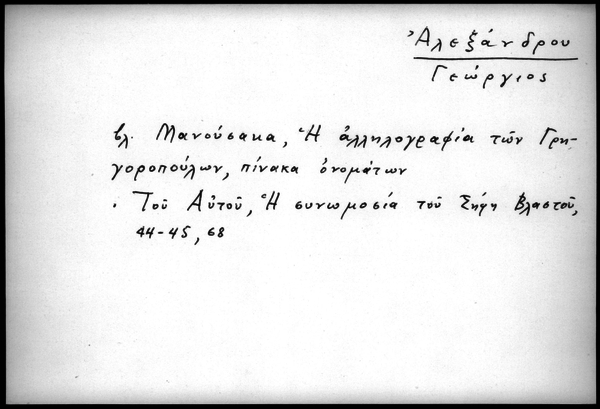 Ἀλεξάνδρου
Γεώργιος
βλ. Μανούσακα, Ἡ ἀλληλογραφία τῶν Γρη-
γοροπούλων, πίνακα ὀνομάτων
· Τοῦ Αὐτοῦ, Ἡ συνωμοσία τοῦ Σήφη Βλαστοῦ,
44-45, 68